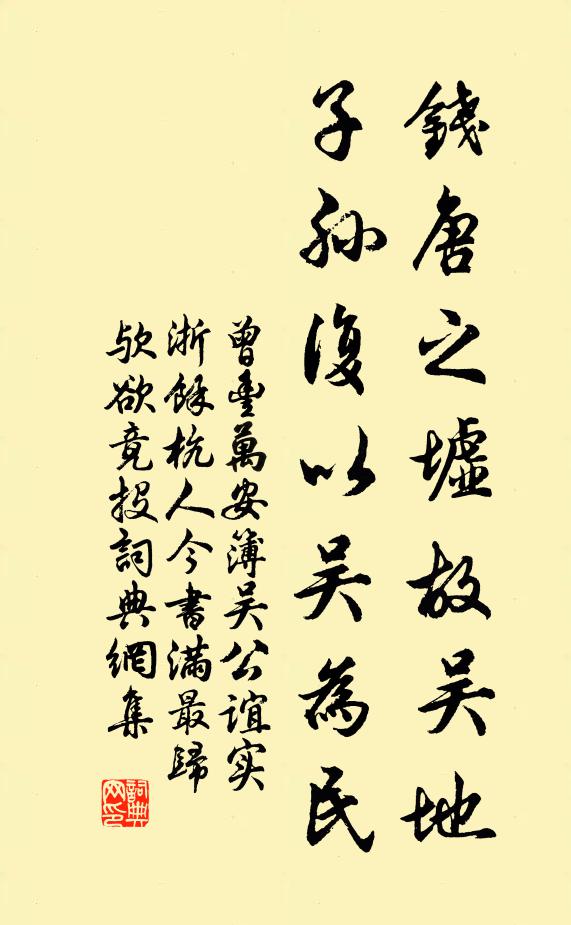 錢唐之墟故吴地
子孙復以吴為民
曾豊萬安簿吴公誼实
浙餘杭人今書滿最歸
欤欲竟投詞典網集
詞典网印